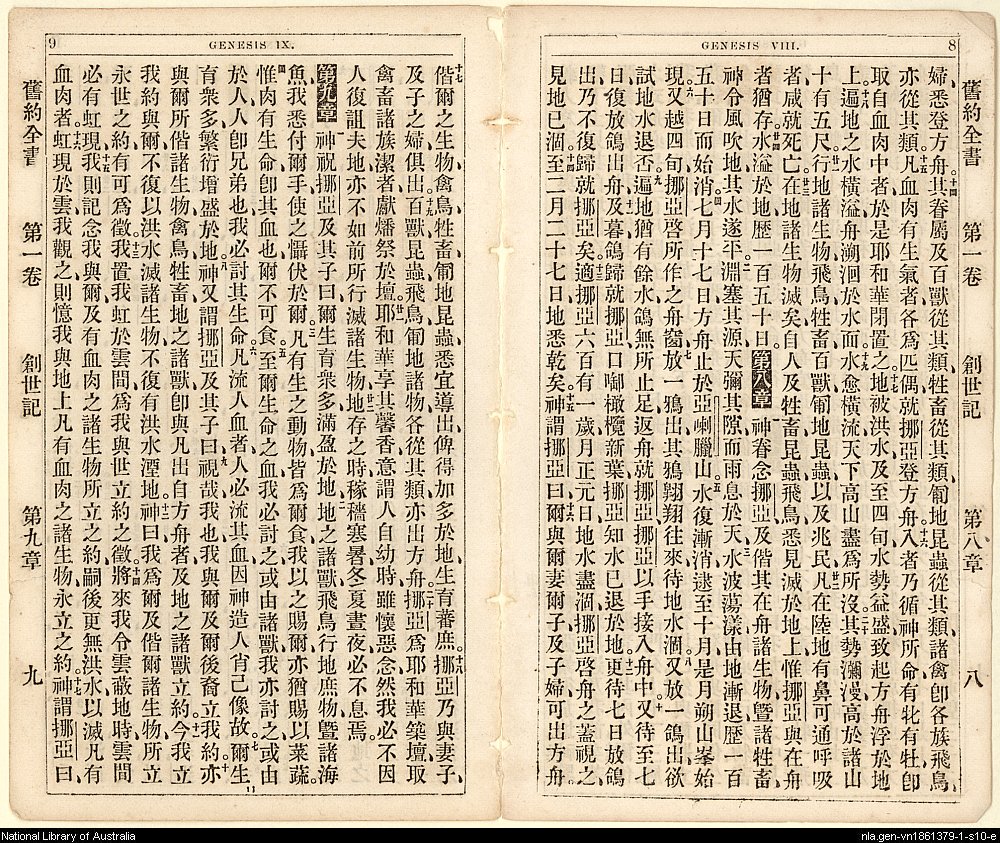 GENESIS VIII.
8
舊約全書 第一卷 創世記 第八章 八
婦悉登方舟其眷屬及百獸從其類牲畜從其類匍地昆蟲從其類諸禽卽各族飛鳥
亦從其類凡血肉有生氣者各爲匹偶就挪亞登方舟入者乃循神所命有牝有牡卽
取自血肉中者於是耶和華閉置之地被洪水及至四旬水勢益盛致起方舟浮於地
上遍地之水橫溢舟溯洄於水面水愈橫流天下高山盡爲所沒其勢瀰漫高於諸山
十有五尺行地諸生物飛鳥牲畜百獸匍地昆蟲以及兆民凡在陸地有鼻可通呼吸
者咸就死亡在地諸生物滅矣自人及牲畜昆蟲飛鳥悉見滅於地上惟挪亞與在舟
者猶存水溢於地歷一百五十日第八章神眷念挪亞及偕其在舟諸生物曁諸牲畜
神令風吹地其水遂平淵塞其源天彌其隙而雨息於天水波蕩漾由地漸退歷一百
五十日而始消七月十七日方舟止於亞喇臘山水復漸消逮至十月是月朔山峯始
現又越四旬挪亞啓所作之舟牕放一鴉出其鴉翔翔往來待地水涸又放一鴿出欲
試地水退否遍地猶有餘水鴿無所止足返舟就挪亞挪亞以手接入舟中又待至七
日復放鴿出舟及暮鴿歸就挪亞口啣橄欖新葉挪亞知水已退於地更待七日放鴿
出乃不復歸就挪亞矣適挪亞六百有一歲月正元日地水盡涸挪亞啓舟之蓋視之
見地已涸至二月二十七日地悉乾矣神謂挪亞曰爾與爾妻爾子及子婦可出方舟
9
GENESIS IX.
偕爾之生物禽鳥牲畜匍地昆蟲悉宜導出俾得加多於地生育蕃庶挪亞乃與妻子
及子之婦俱出百獸昆蟲飛鳥匍地諸物各從其類亦出方舟挪亞爲耶和華築壇取
禽畜諸族潔者獻燔祭於壇耶和華享其馨香意謂人自幼時雖懷惡念然我必不因
人復詛夫地亦不如前所行滅諸生物地存之時稼穡寒暑冬夏晝夜必不息焉
第九章神祝挪亞及其子曰爾生育衆多滿盈於地地之諸獸飛鳥行地庶物曁諸海
魚我悉付爾手使之懾伏於爾凡有生之動物皆爲爾食我以之賜爾亦猶賜以菜蔬
惟肉有生命卽其血也爾不可食至爾生命之血我必討之或由諸獸我亦討之或由
於人人卽兄弟也我必討其生命凡流人血者人必流其血因神造人肖己像故爾生
育衆多繁衍增盛於地神又謂挪亞及其子曰視哉我也我與爾及爾後裔立我約亦
與爾所偕諸生物禽鳥牲畜地之諸獸卽與凡出自方舟者及地之諸獸立約今我立
我約與爾不復以洪水滅諸生物不復有洪水湮地神曰我爲爾及偕爾諸生物所立
永世之約有可爲徵我置我虹於雲間爲我與世立約之徵將來我令雲蔽地時雲間
必有虹現我則記念我與爾及有血肉之諸生物所立之約嗣後更無洪水以滅凡有
血肉者虹現於雲我觀之則憶我與地上凡有血肉之諸生物永立之約神謂挪亞曰
舊約全書 第一卷 創世記 第九章 九
National Library of Australia
nla.gen-vn1861379-1-s10-e